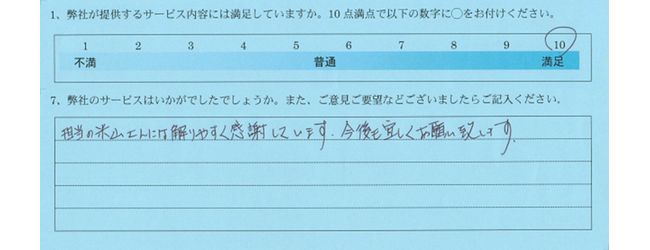 1、弊社が提供するサービス内容には満足していますか。10点満点で以下の数字に○をお付けください。
1 2 3 4 5 6 7 8 9 10
不満 普通 満足
7、弊社のサービスはいかがでしたでしょうか。また、ご意見ご要望などございましたらご記入ください。
担当の米山さんには解りやすく感謝しています。今後も宜しくお願い致します。